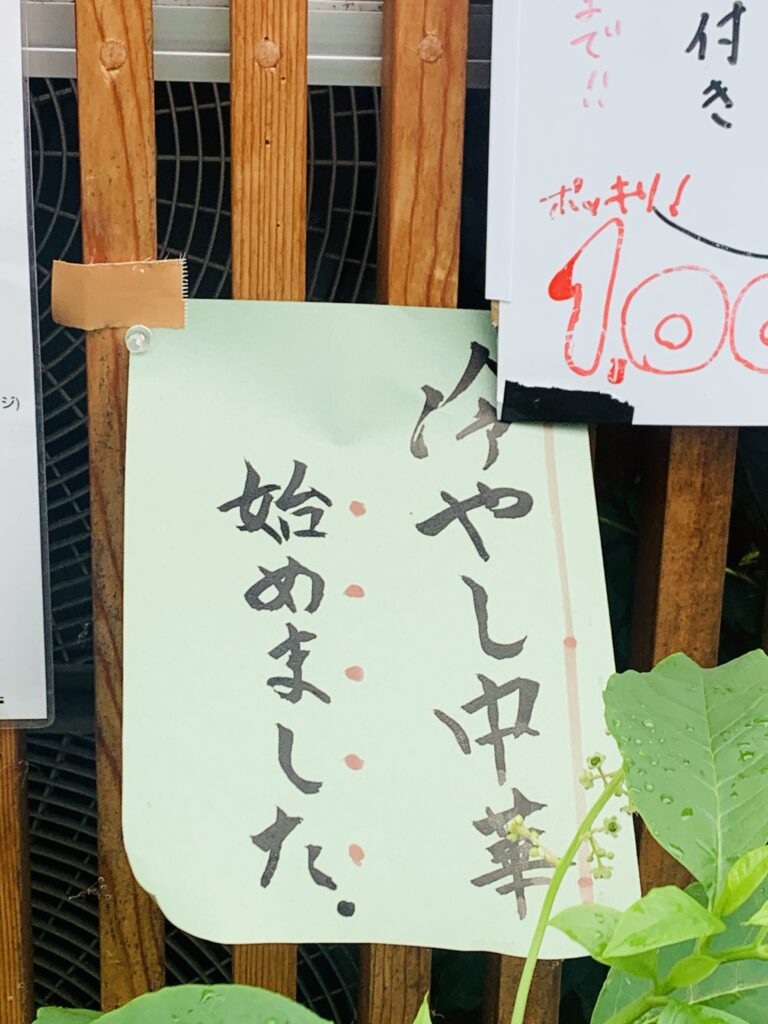 冷やし中華
始めました.
付き
まで!!
ポッキリ!
1,00
ジ)